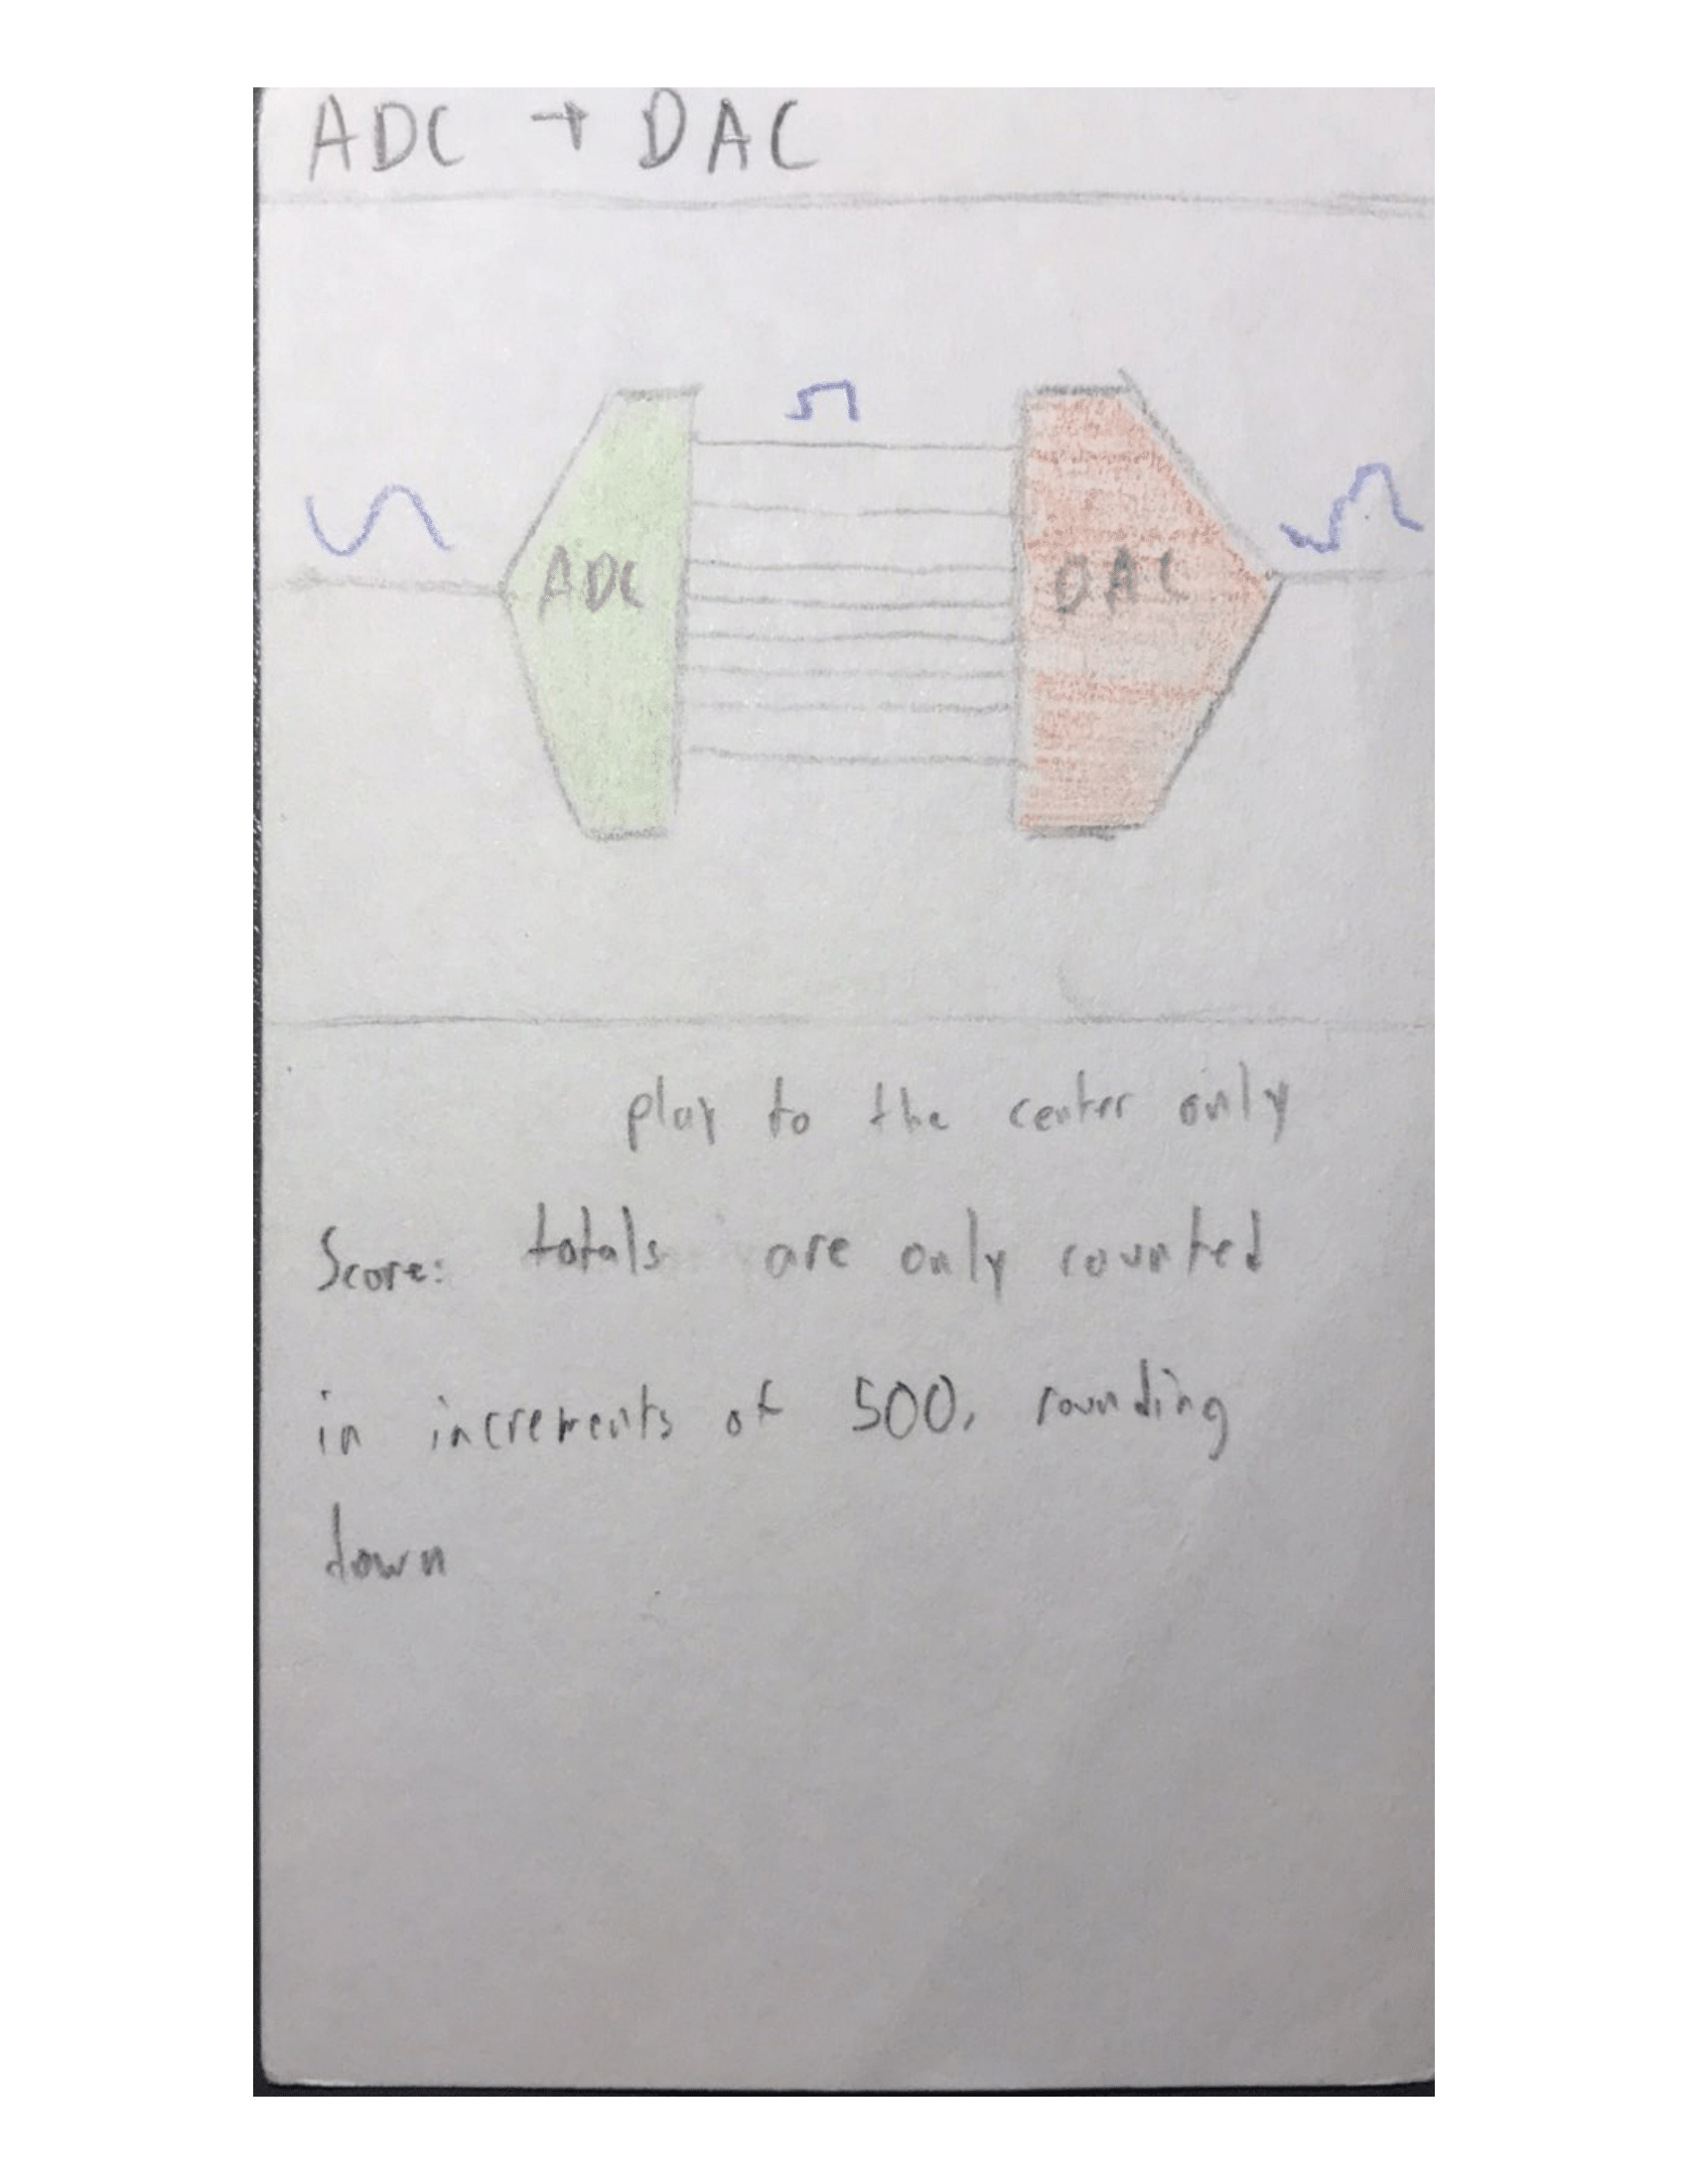 ADC → DAC
ADC
DAC
play to the center only
Score: totals are only counted
in increments of 500, rounding
down